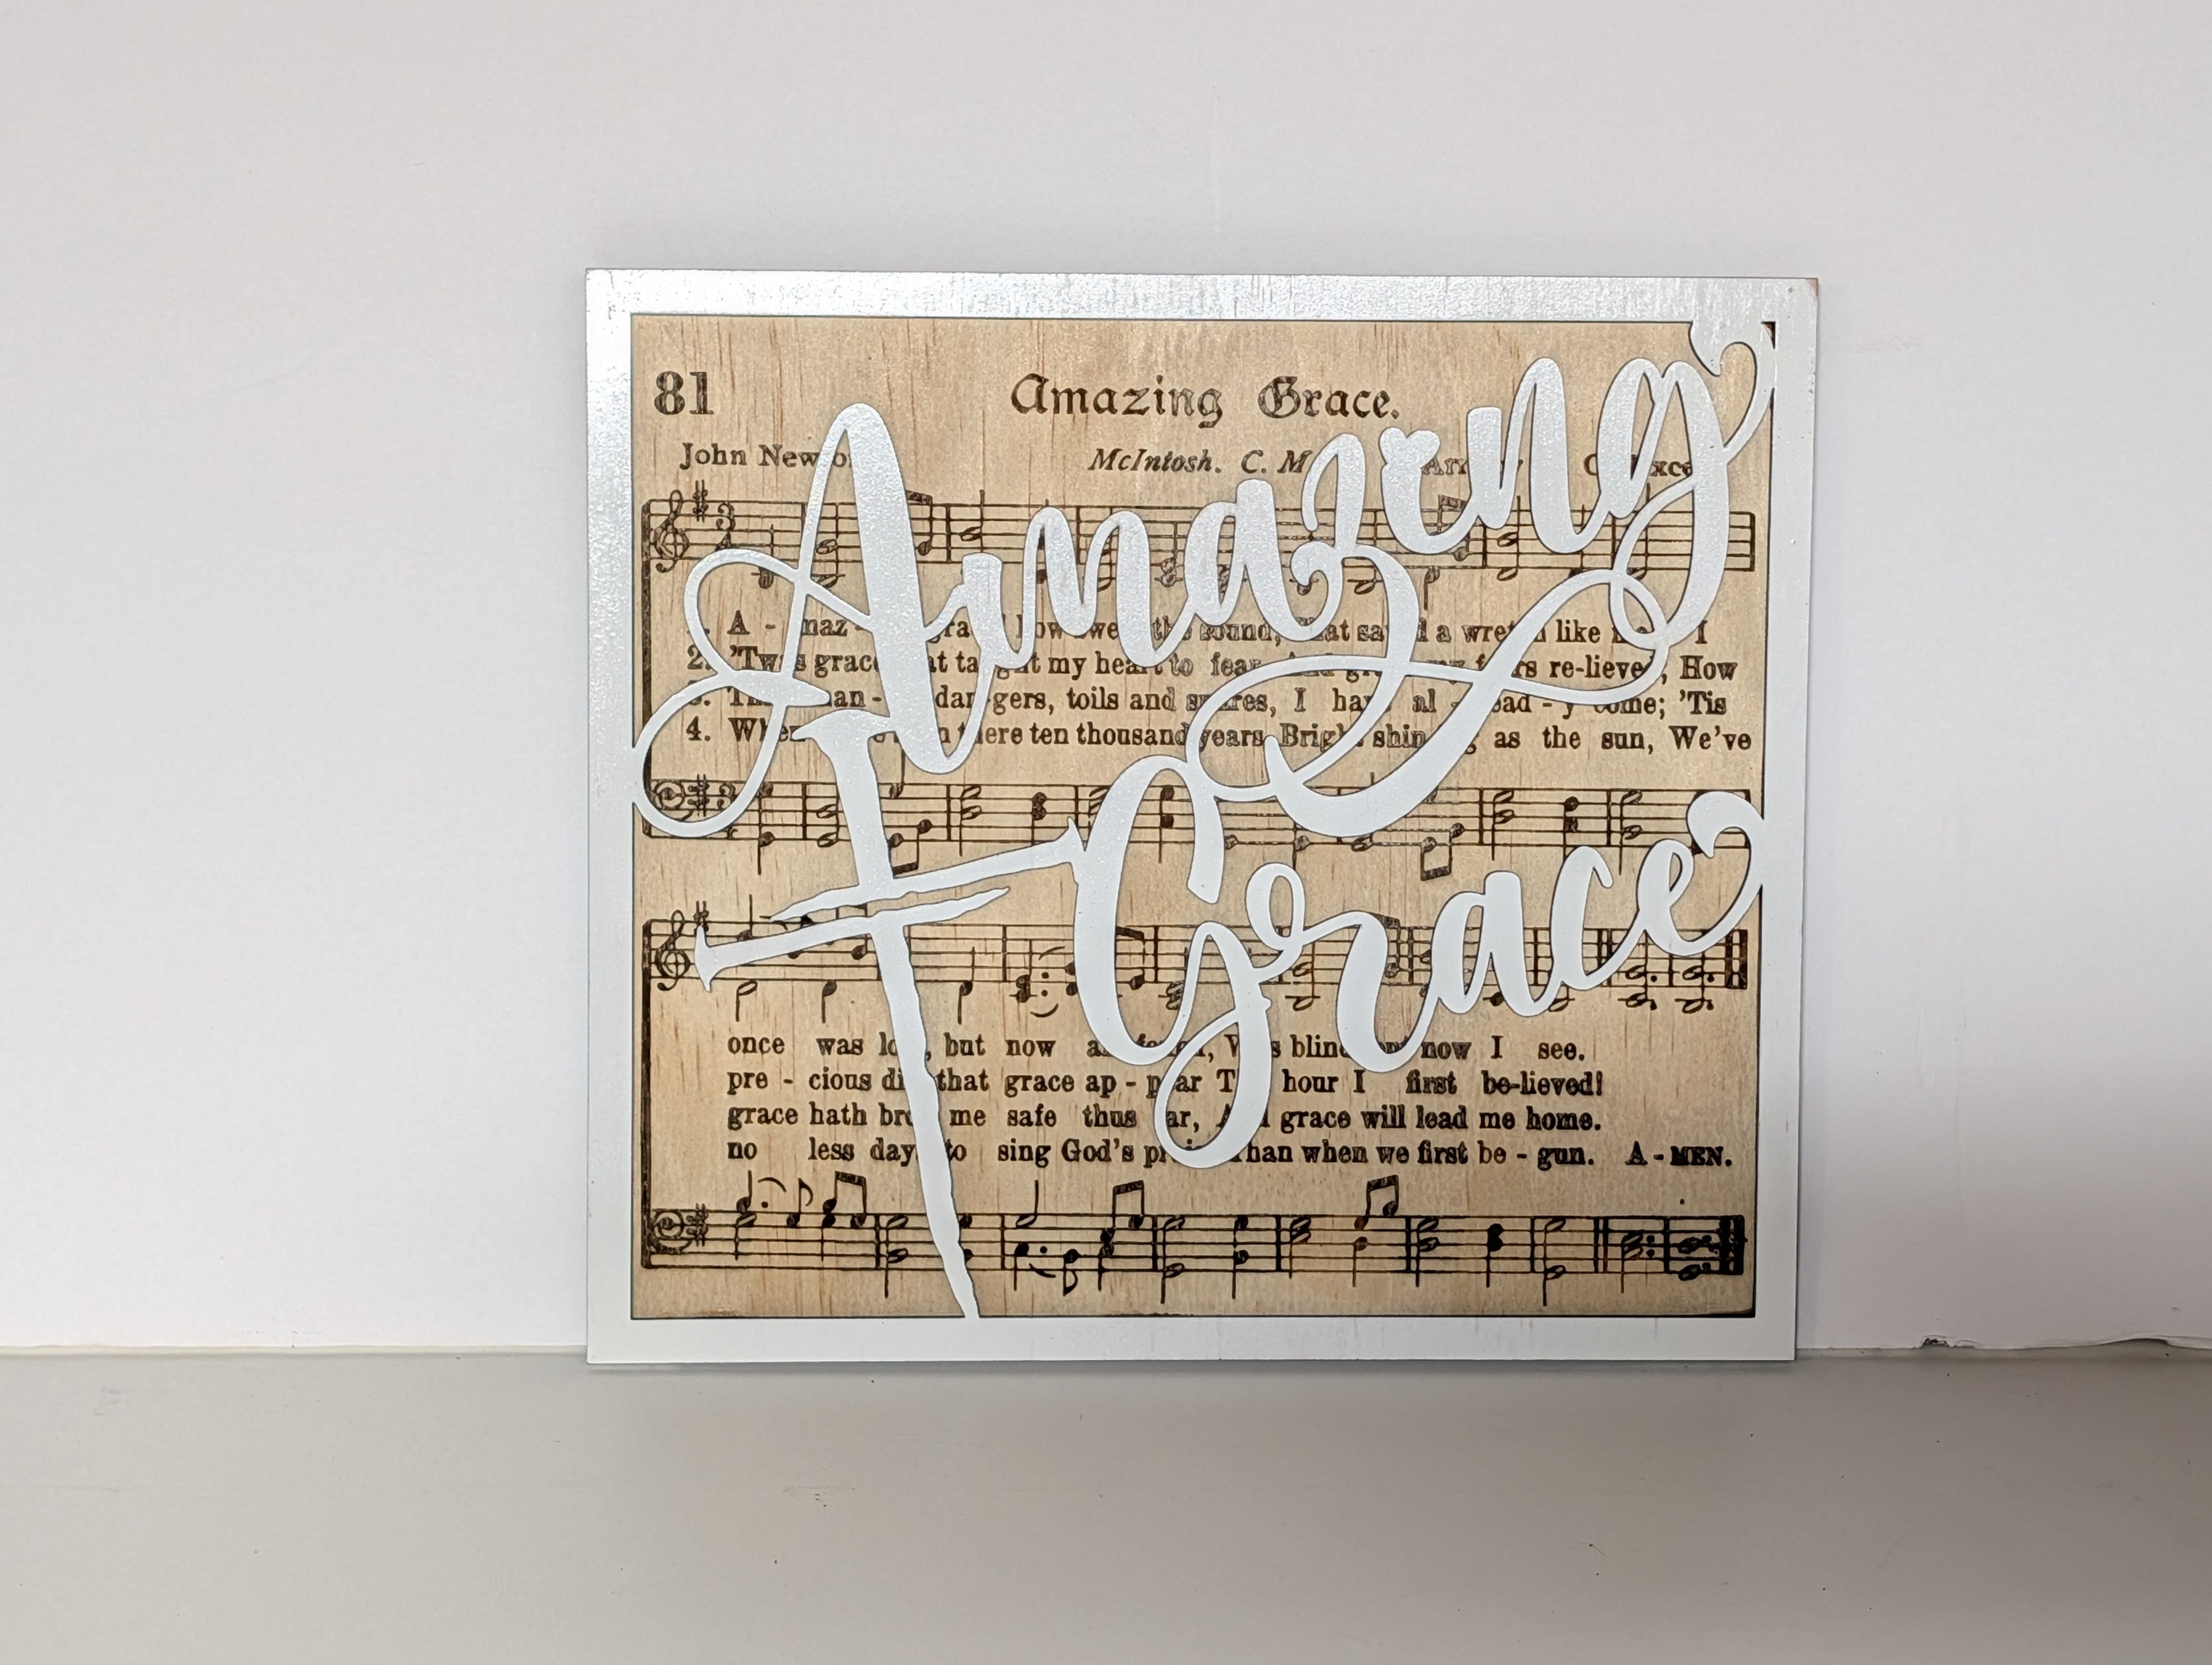 81 Amazing Grace.
John Newto
McIntosh. C. M
Amazing
A - maz - gra how swe the sound, at sa d a wret like I
2. 'Twas grace at ta t my heart to fear, my f rs re-lieve, How
3. an - dan-gers, toils and sn res, I hav al - ead - y come; 'Tis
4. When n there ten thousand years Brigh shin g as the sun, We've
Grace
once was lo , but now a , W s blin now I see.
pre - cious di that grace ap - p ar T hour I first be-lieved!
grace hath bro me safe thus ar, A grace will lead me home.
no less day to sing God's pr Than when we first be - gun. A - MEN.